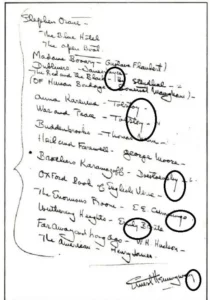 Stephen Crane -
"The Blue Hotel
The Open Boat
Madame Bovary - Gustave Flaubert
Dubliners -
The Red and the Black - By Stendhal -
Of Human Bondage - Somerset Maugham
Anna Karenina - Tolstoy -
War and Peace - Tolstoy -
Buddenbrooks - Thomas
Hail and Farewell - George Moore -
Brothers Karamazoff - Dostoevsky
Oxford Book of English Verse -
The Enormous Room - E.E. Cummings
Wuthering Heights - Emily Bronte
Far Away and Long Ago - W.H. Hudson -
The American - Henry James -
Ernest Hemingway